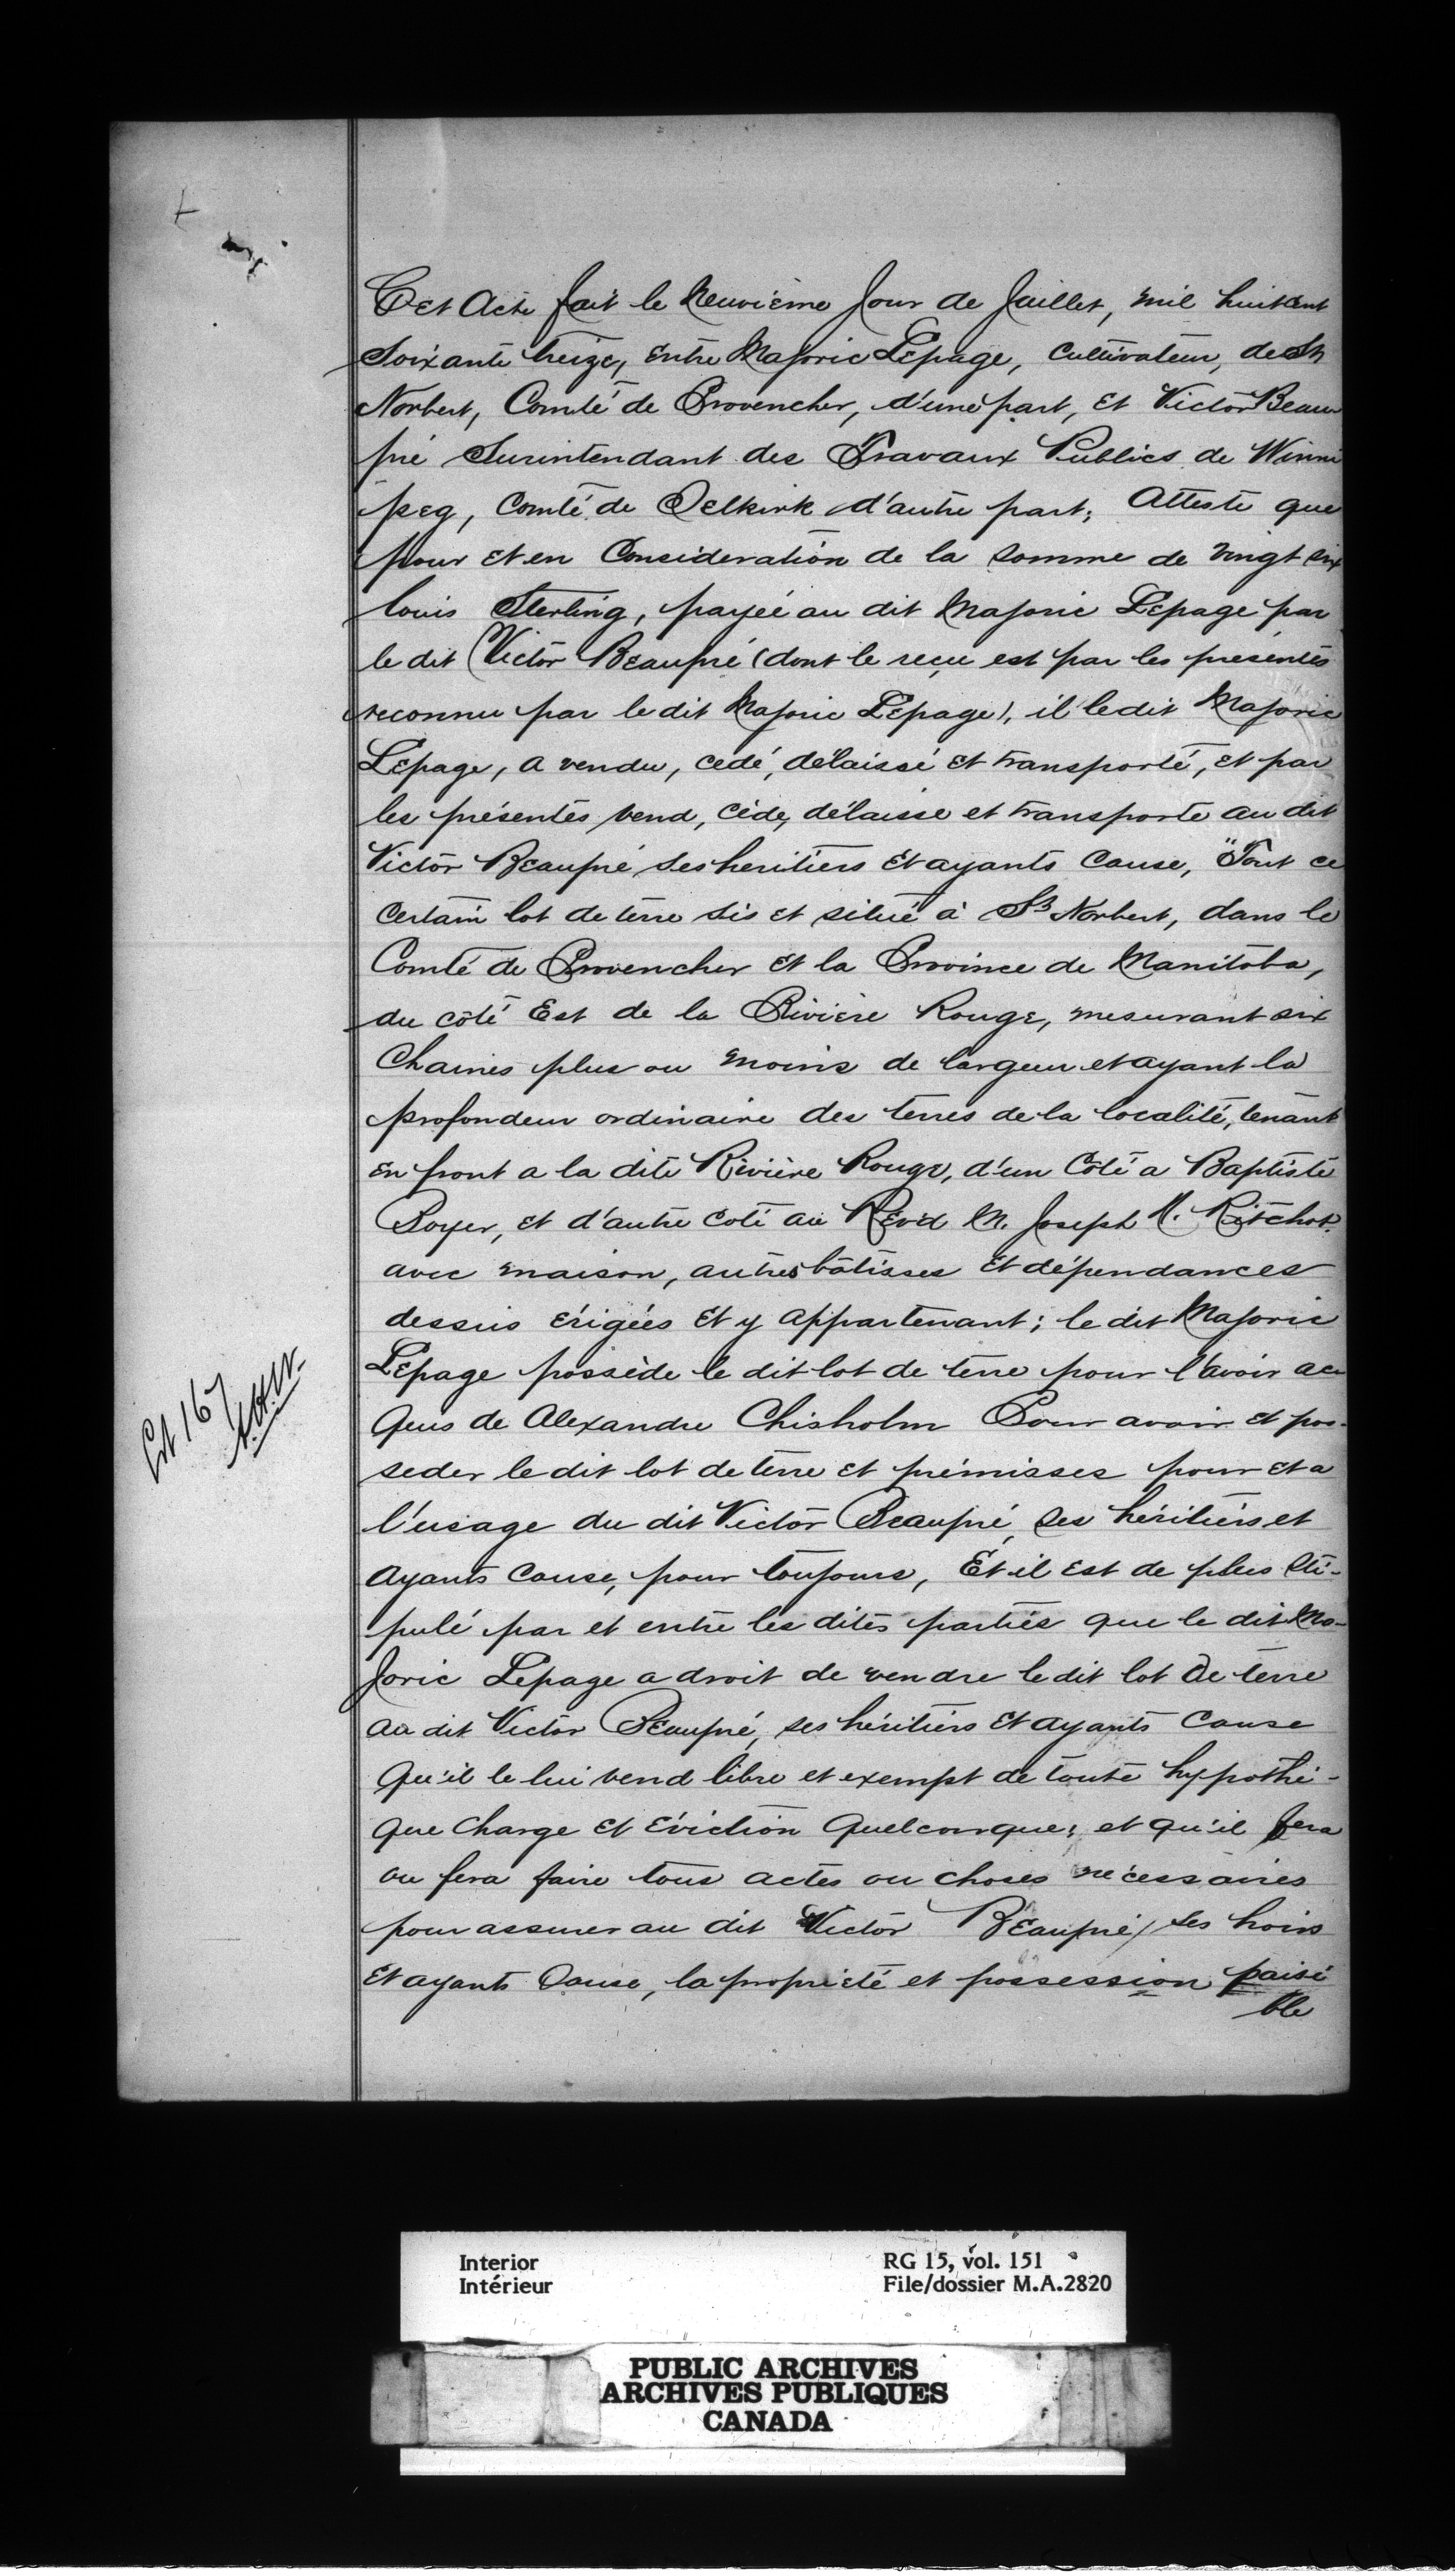 Cet Acte fait le Neuvième Jour de Juillet, mil huit cent
Soixante treize, entre Majoric Lepage, Cultivateur, de St
Norbert, Comté de Provencher, d'une part, et Victor Beau
pré Surintendant des Travaux Publics de Winni
peg, Comté de Selkirk d'autre part; Atteste que
pour et en Consideration de la Somme de vingt six
louis Sterling, payée au dit Majoric Lepage par
le dit Victor Beaupré (dont le reçu est par les présentes
reconnu par le dit Majoric Lepage), il le dit Majoric
Lepage, a vendu, cedé, délaissé et transporté, et par
les présentes vend, cède, délaisse et transporte au dit
Victor Beaupré ses heritiers et ayants cause, "Tout ce
certain lot de terre sis et situé à St Norbert, dans le
Comté de Provencher et la Province de Manitoba,
du côté Est de la Rivière Rouge, mesurant six
Chaines plus ou moins de largeur et ayant la
profondeur ordinaire des terres de la localité, tenant
en front a la dite Rivière Rouge, d'un Côté a Baptiste
Poyer, et d'autre coté au Revd M. Joseph N. Ritchot.
avec maison, autres bâtisses et dépendances
dessus érigées et y appartenant; le dit Majoric
Lepage possède le dit lot de terre pour l'avoir ac
quis de Alexandre Chisholm Pour avoir et pos-
seder le dit lot de terre et prémisses pour et a
l'usage du dit Victor Beaupré, ses héritiers et
ayants cause, pour toujours, Et il est de plus sti-
pulé par et entre les dites parties que le dit Ma-
joric Lepage a droit de vendre le dit lot de terre
au dit Victor Beaupré, ses héritiers et ayants cause
qu'il le lui vend libre et exempt de toute hypothè-
que charge et éviction quelconque; et qu'il fera
ou fera faire tous actes ou choses nécessaires
pour assurer au dit Victor Beaupré, ses hoirs
et ayants cause, la propriété et possession paisi
ble
Lot 167
Interior
Intérieur
RG 15, vol. 151
File/dossier M.A.2820
PUBLIC ARCHIVES
ARCHIVES PUBLIQUES
CANADA